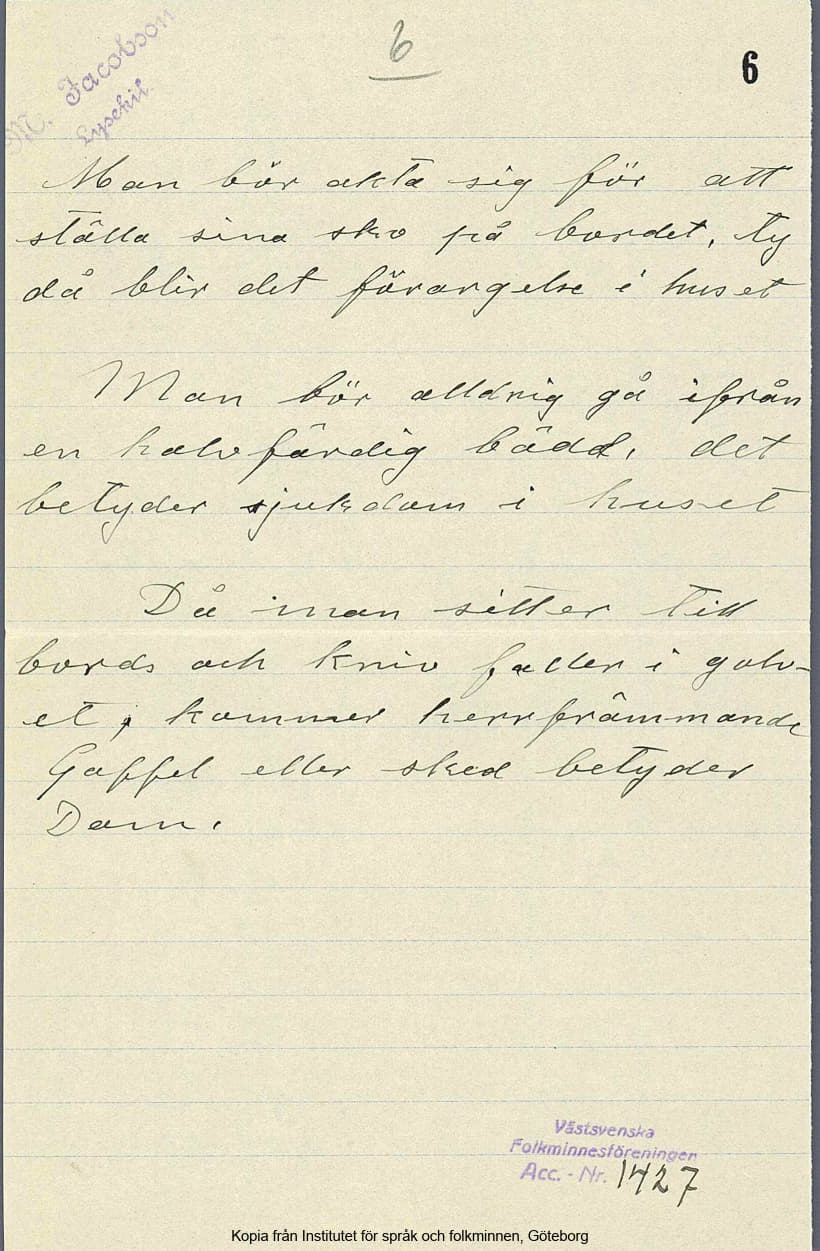 M. Jacobson
Lysekil.
6
6
Man bör akta sig för att
ställa sina sko på bordet, ty
då blir det förargelse i huset
Man bör alldrig gå ifrån
en halvfärdig bädd, det
betyder sjukdom i huset
Då man sitter till
bords och kniv faller i golv-
et, kommer herrfrämmande
Gaffel eller sked betyder
Dam.
Västsvenska
Folkminnesföreningen
Acc. - Nr. 1427
Kopia från Institutet för språk och folkminnen, Göteborg